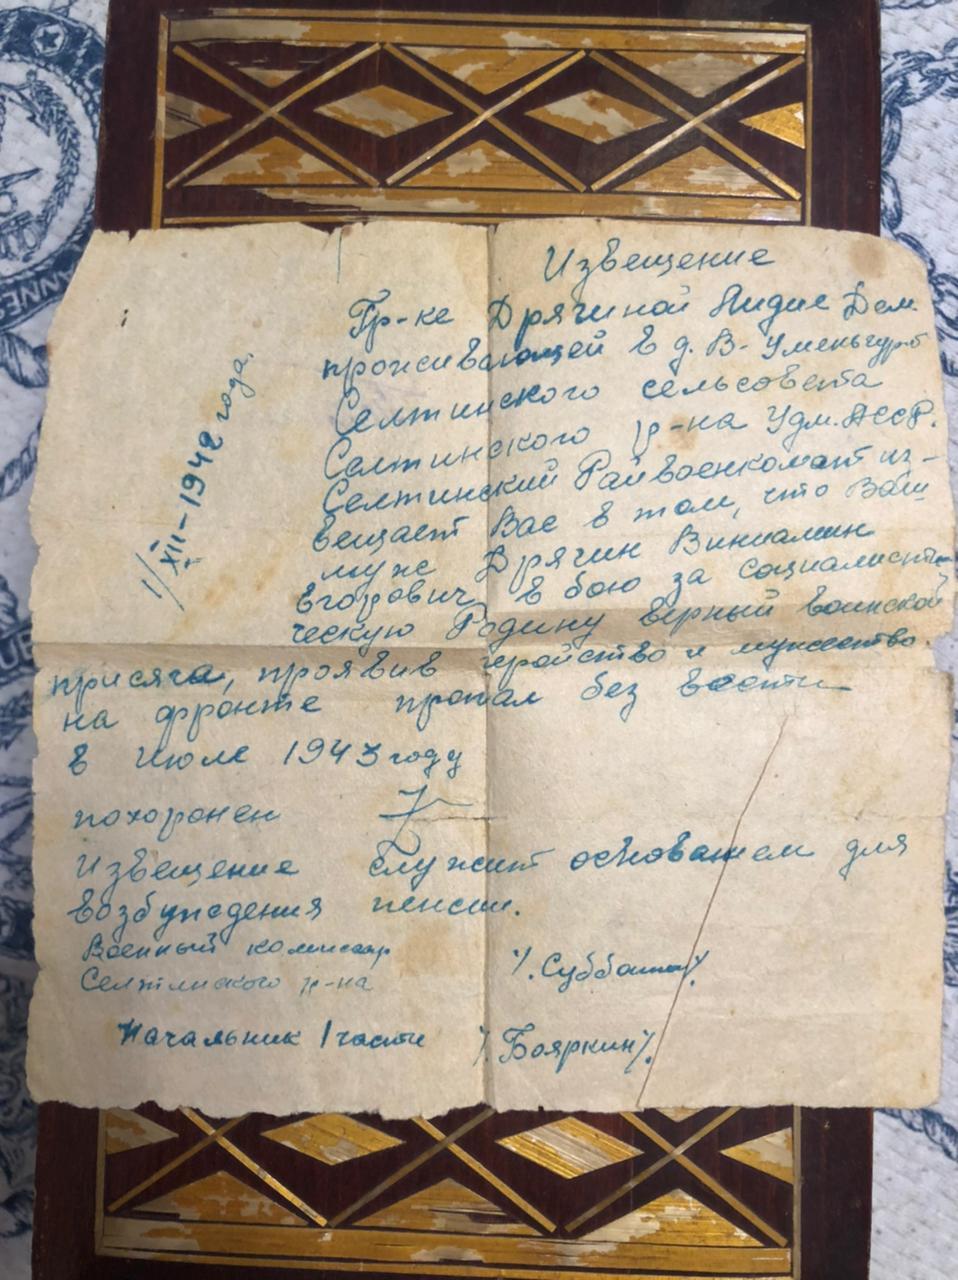 Извещение
Гр-ке Дрягиной Лидие Дем.
проживающей в д. В-Уменьгурт
Селтинского сельсовета
Селтинского р-на Удм.АССР.
Селтинский Райвоенкомат из-
вещает Вас в том, что Ваш
муж Дрягин Виниамин
Егорович, в бою за социалисти-
ческую Родину верный воинской
присяга, проявив геройство и мужество
на фронте пропал без вести
в Июле 1943 году
похоронен
Извещение служит основанием для
возбуждения пенсии.
Военный комиссар
Селтинского р-на /. Субботин/.
Начальник 1 части /. Бояркин/.
1/XII-1942 года.